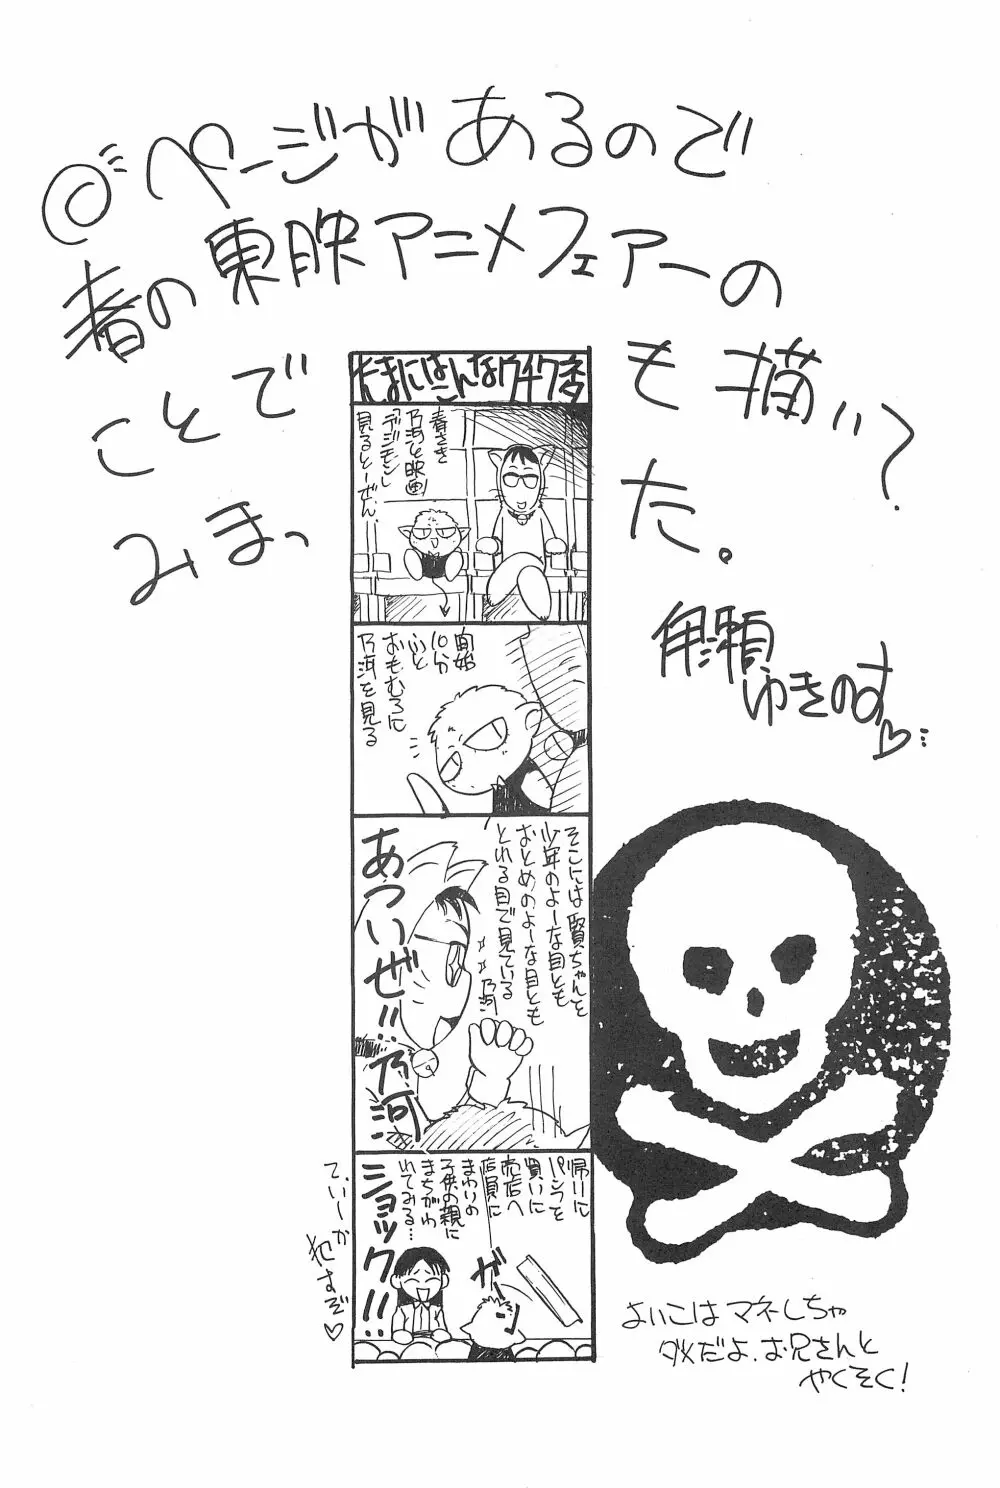 ページがあるので
春の東映アニメフェアーの
ことでも描い?
みまった。
角瀬
ゆきのす♡
たまにはこんなウチワネタ
春さき
乃河と映画
「デジモン」
見るとーぜん、
開始
10分
ふと
おもむろに
乃河を見る
そこには賢ちゃんと
少年のよーな目とも
おとめのよーな目とも
とれる目で見ている
乃河
あついぜ!!乃河!
帰りに
パンフを
買いに
売店へ
店員に
まわりの
子供の親に
まちがわ
れてみる…
ショック!!
ガーン
てぃーか
犯すぞ♡
よいこはマネしちゃ
ダメだよ.お兄さんと
やくそく!